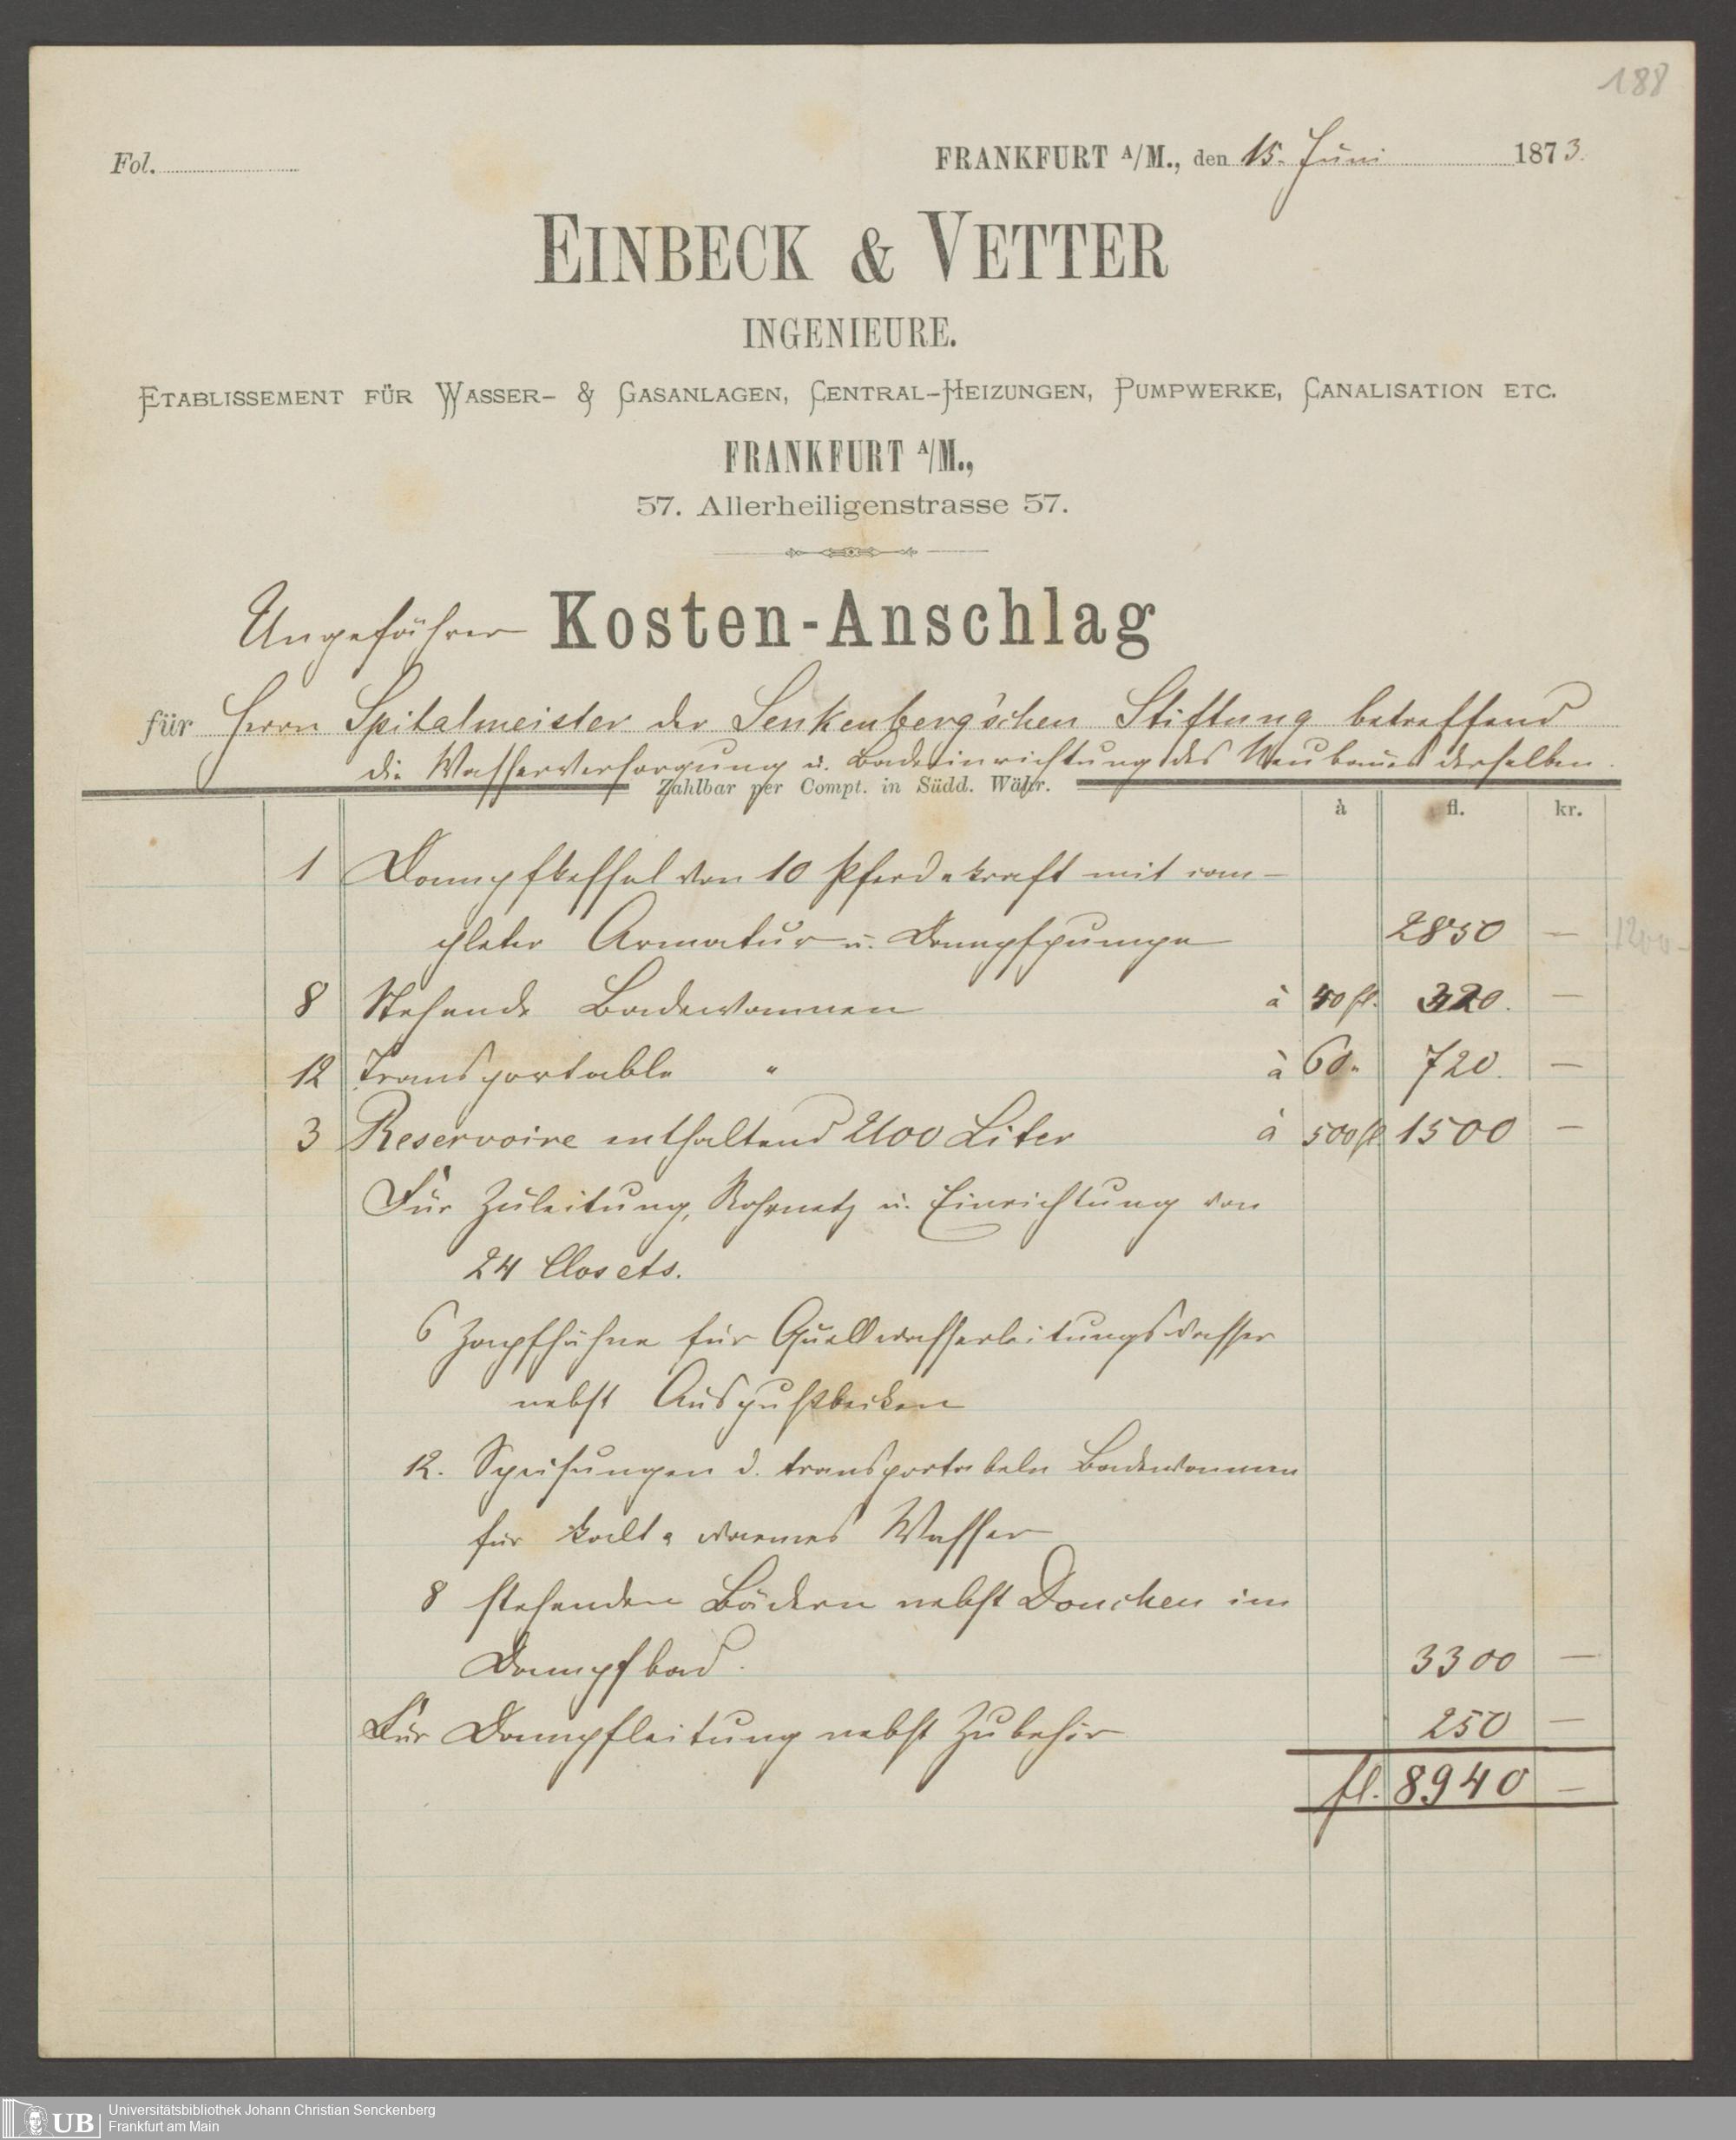 188
Fol. FRANKFURT A/M., den 15. Juni 1873.
EINBECK & VETTER
INGENIEURE.
ETABLISSEMENT FÜR WASSER- & GASANLAGEN, CENTRAL-HEIZUNGEN, PUMPWERKE, CANALISATION ETC.
FRANKFURT A/M.,
57. Allerheiligenstrasse 57.
Ungefährer Kosten-Anschlag
für Herrn Spitalmeister der Senkenberg'schen Stiftung betreffend
die Wasserversorgung u. Badeinrichtung des Neubaues derselben.
Zahlbar per Compt. in Südd. Währ.
à fl. kr.
1 Dampfkessel von 10 Pferdekraft mit com-
pleter Armatur u. Dampfpumpe 2850 — 1200-
8 Stehende Badewannen à 40 fl. 320. —
12 Transportable " à 60 " 720. —
3 Reservoire enthaltend 2100 Liter à 500 fl 1500 —
Für Zuleitung, Rohrnetz u. Einrichtung von
24 Closets.
6 Zapfhähne für Quellwasserleitungswasser
nebst Ausgußbecken
12. Speisungen d. transportabeln Badewannen
für kalt & warmes Wasser
8 stehenden Bädern nebst Douchen im
Dampfbad. 3300 —
Für Dampfleitung nebst Zubehör 250 —
fl. 8940 —
UB Universitätsbibliothek Johann Christian Senckenberg
Frankfurt am Main